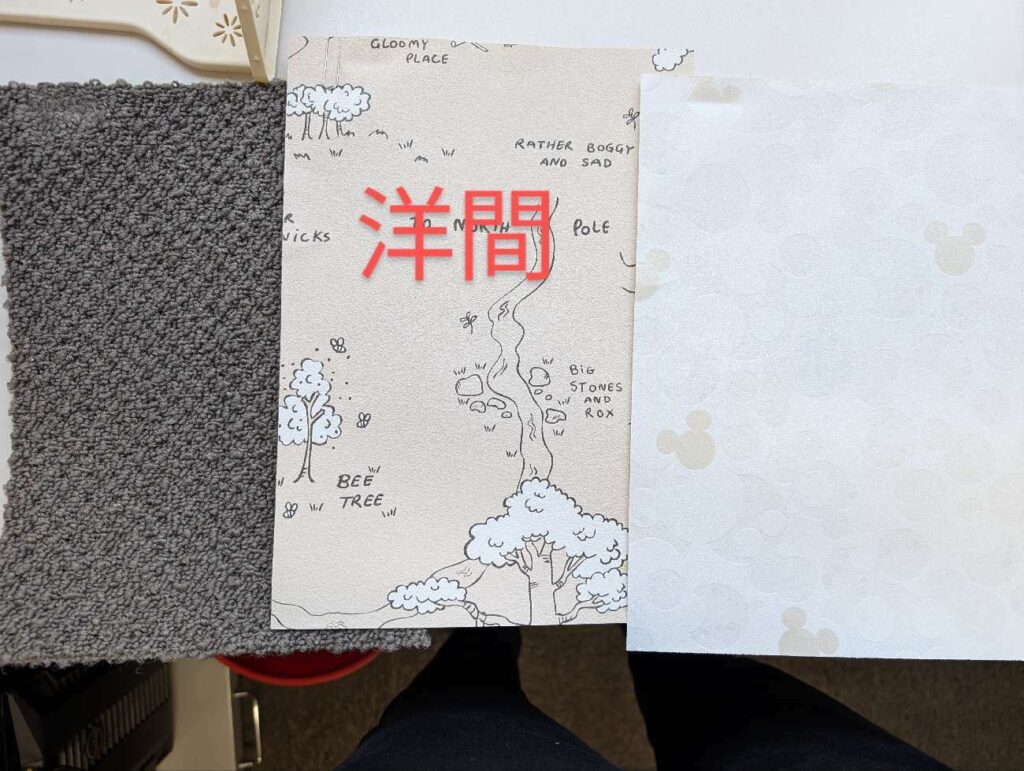 GLOOMY
PLACE
RATHER BOGGY
AND SAD
洋間
TO NORTH POLE
BIG
STONES
AND
ROX
BEE
TREE